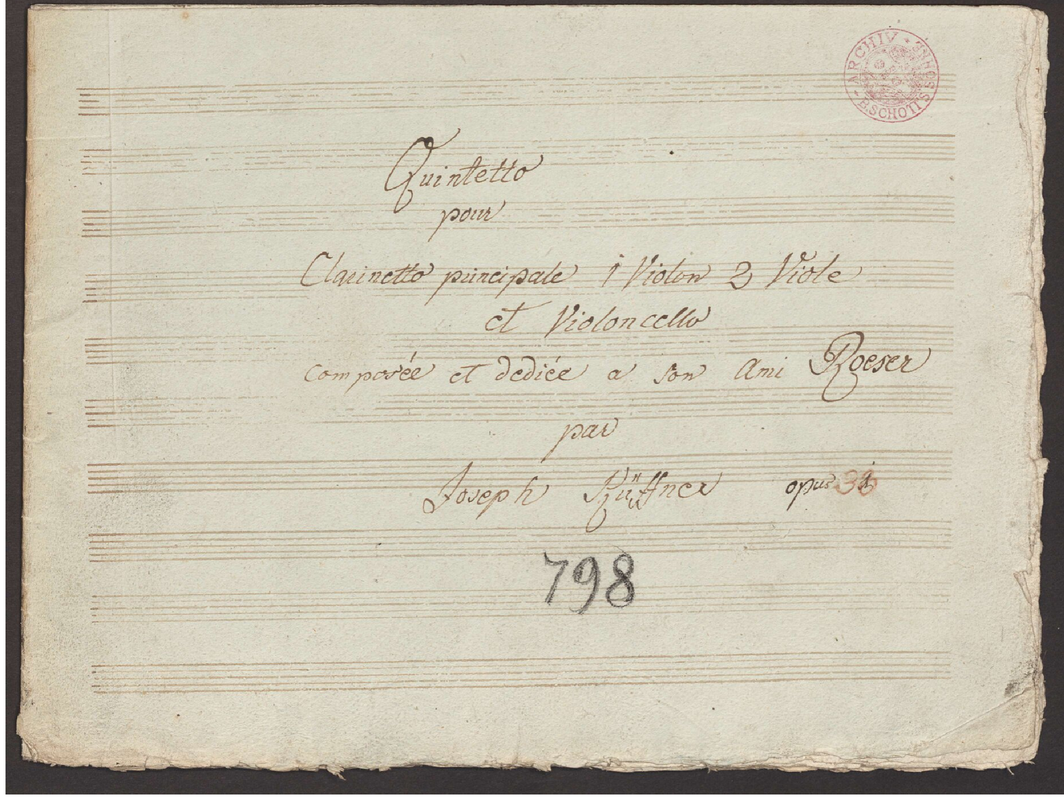 ARCHIV B. SCHOTT'S SÖHNE
Quintetto
pour
Clarinetto principale 1 Violon 2 Viole
et Violoncello
composée et dediée a son Ami Roeser
par
Joseph Küffner opus
798